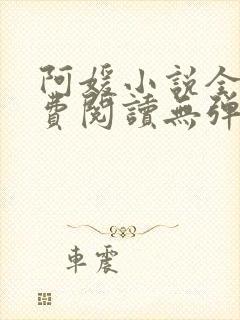 阿媛小说全
費閱讀無彈
車震